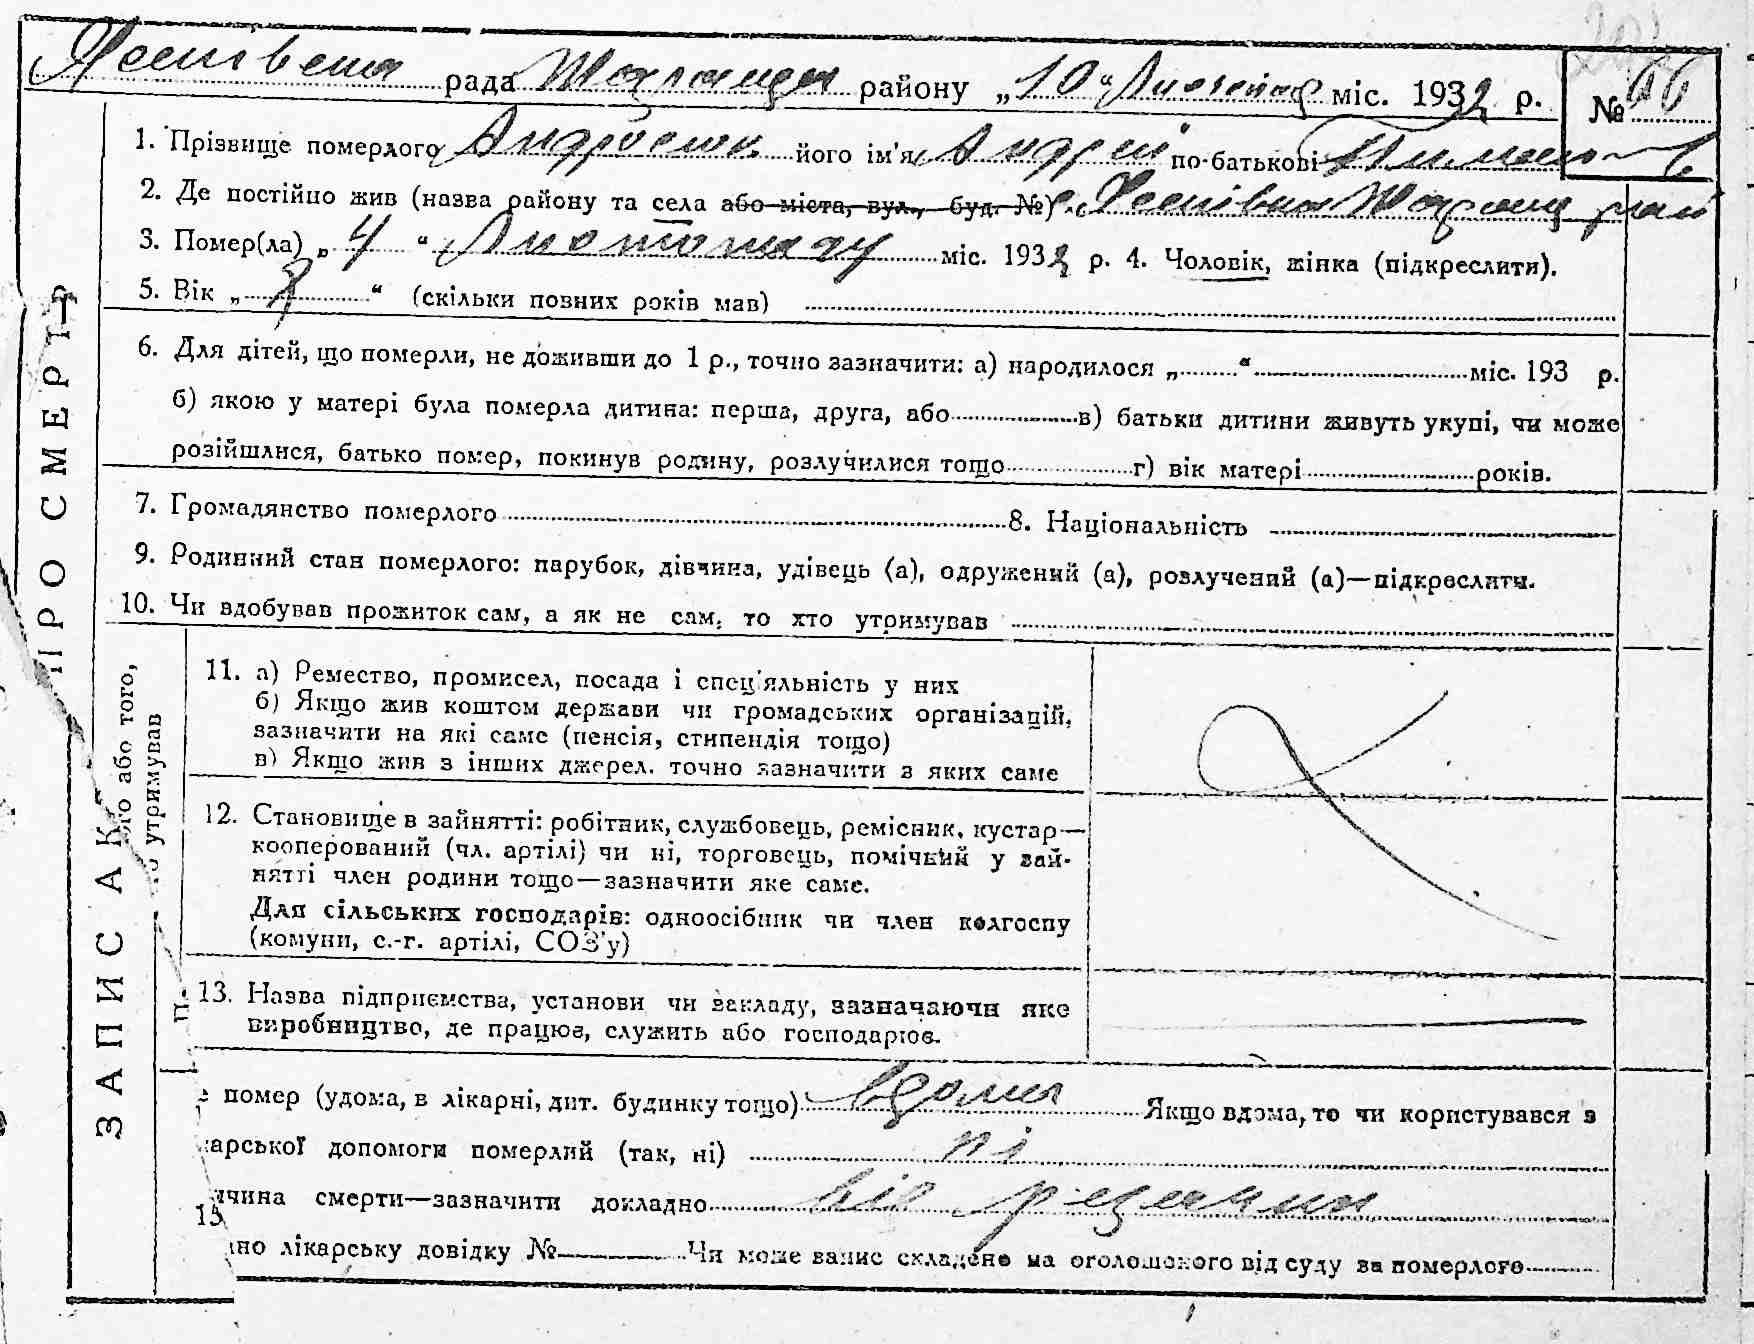 рада Шаланди району „10“ Листопад міс. 1932 р. № 66
1. Прізвище померлого Андросюк його ім'я Андрій по-батькові
2. Де постійно жив (назва району та села або міста, вул., буд. №) с.
3. Помер(ла) „4“ Листопаду міс. 1932 р. 4. Чоловік, жінка (підкреслити).
5. Вік „ “ (скільки повних років мав)
6. Для дітей, що померли, не доживши до 1 р., точно зазначити: а) народилося „ “ міс. 193 р.
б) якою у матері була померла дитина: перша, друга, або в) батьки дитини живуть укупі, чи може
розійшлися, батько помер, покинув родину, розлучилися тощо г) вік матері років.
7. Громадянство померлого 8. Національність
9. Родинний стан померлого: парубок, дівчина, удівець (а), одружений (а), розлучений (а)—підкреслити.
10. Чи здобував прожиток сам, а як не сам, то хто утримував
11. а) Ремество, промисел, посада і спец'яльність у них
б) Якщо жив коштом держави чи громадських організацій,
зазначити на які саме (пенсія, стипендія тощо)
в) Якщо жив з інших джерел, точно зазначити з яких саме
12. Становище в зайнятті: робітник, службовець, ремісник, кустар—
кооперований (чл. артілі) чи ні, торговець, помічний у зай-
нятті член родини тощо—зазначити яке саме.
Для сільських господарів: одноосібник чи член колгоспу
(комуни, с.-г. артілі, СОЗ'у)
13. Назва підприємства, установи чи закладу, зазначаючи яке
виробництво, де працює, служить або господарює.
помер (удома, в лікарні, дит. будинку тощо) вдома Якщо вдома, то чи користувався з
карської допомоги померлий (так, ні) ні
15
чина смерти—зазначити докладно від
но лікарську довідку № Чи може запис складено на оголошеного від суду за померлого
ЗАПИС АК ПРО СМЕРТЬ
ого або того,
утримував